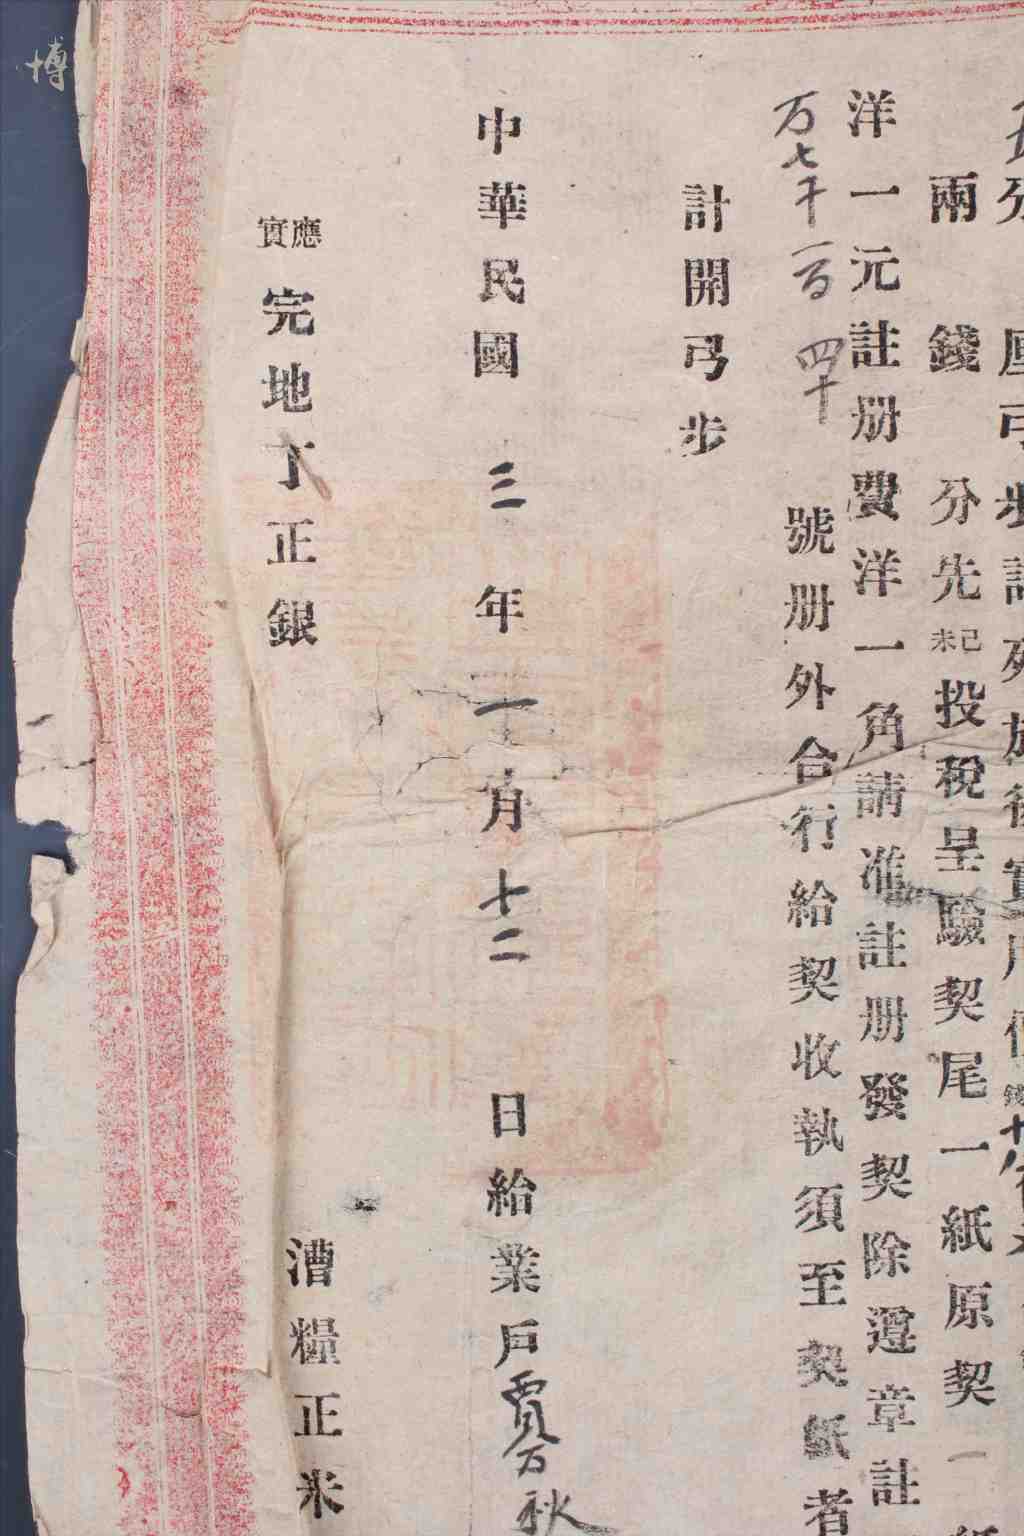 兩 錢 分先已未投税呈驗契尾一紙原契一
洋一元註册費洋一角請准註册發契除遵章註
万七千一百四十 號册外合行給契收執須至契紙者
計開弓步
中華民國 三 年 二 月 十二 日給業戶賈万秋
應實 完地丁正銀 漕糧正米
博